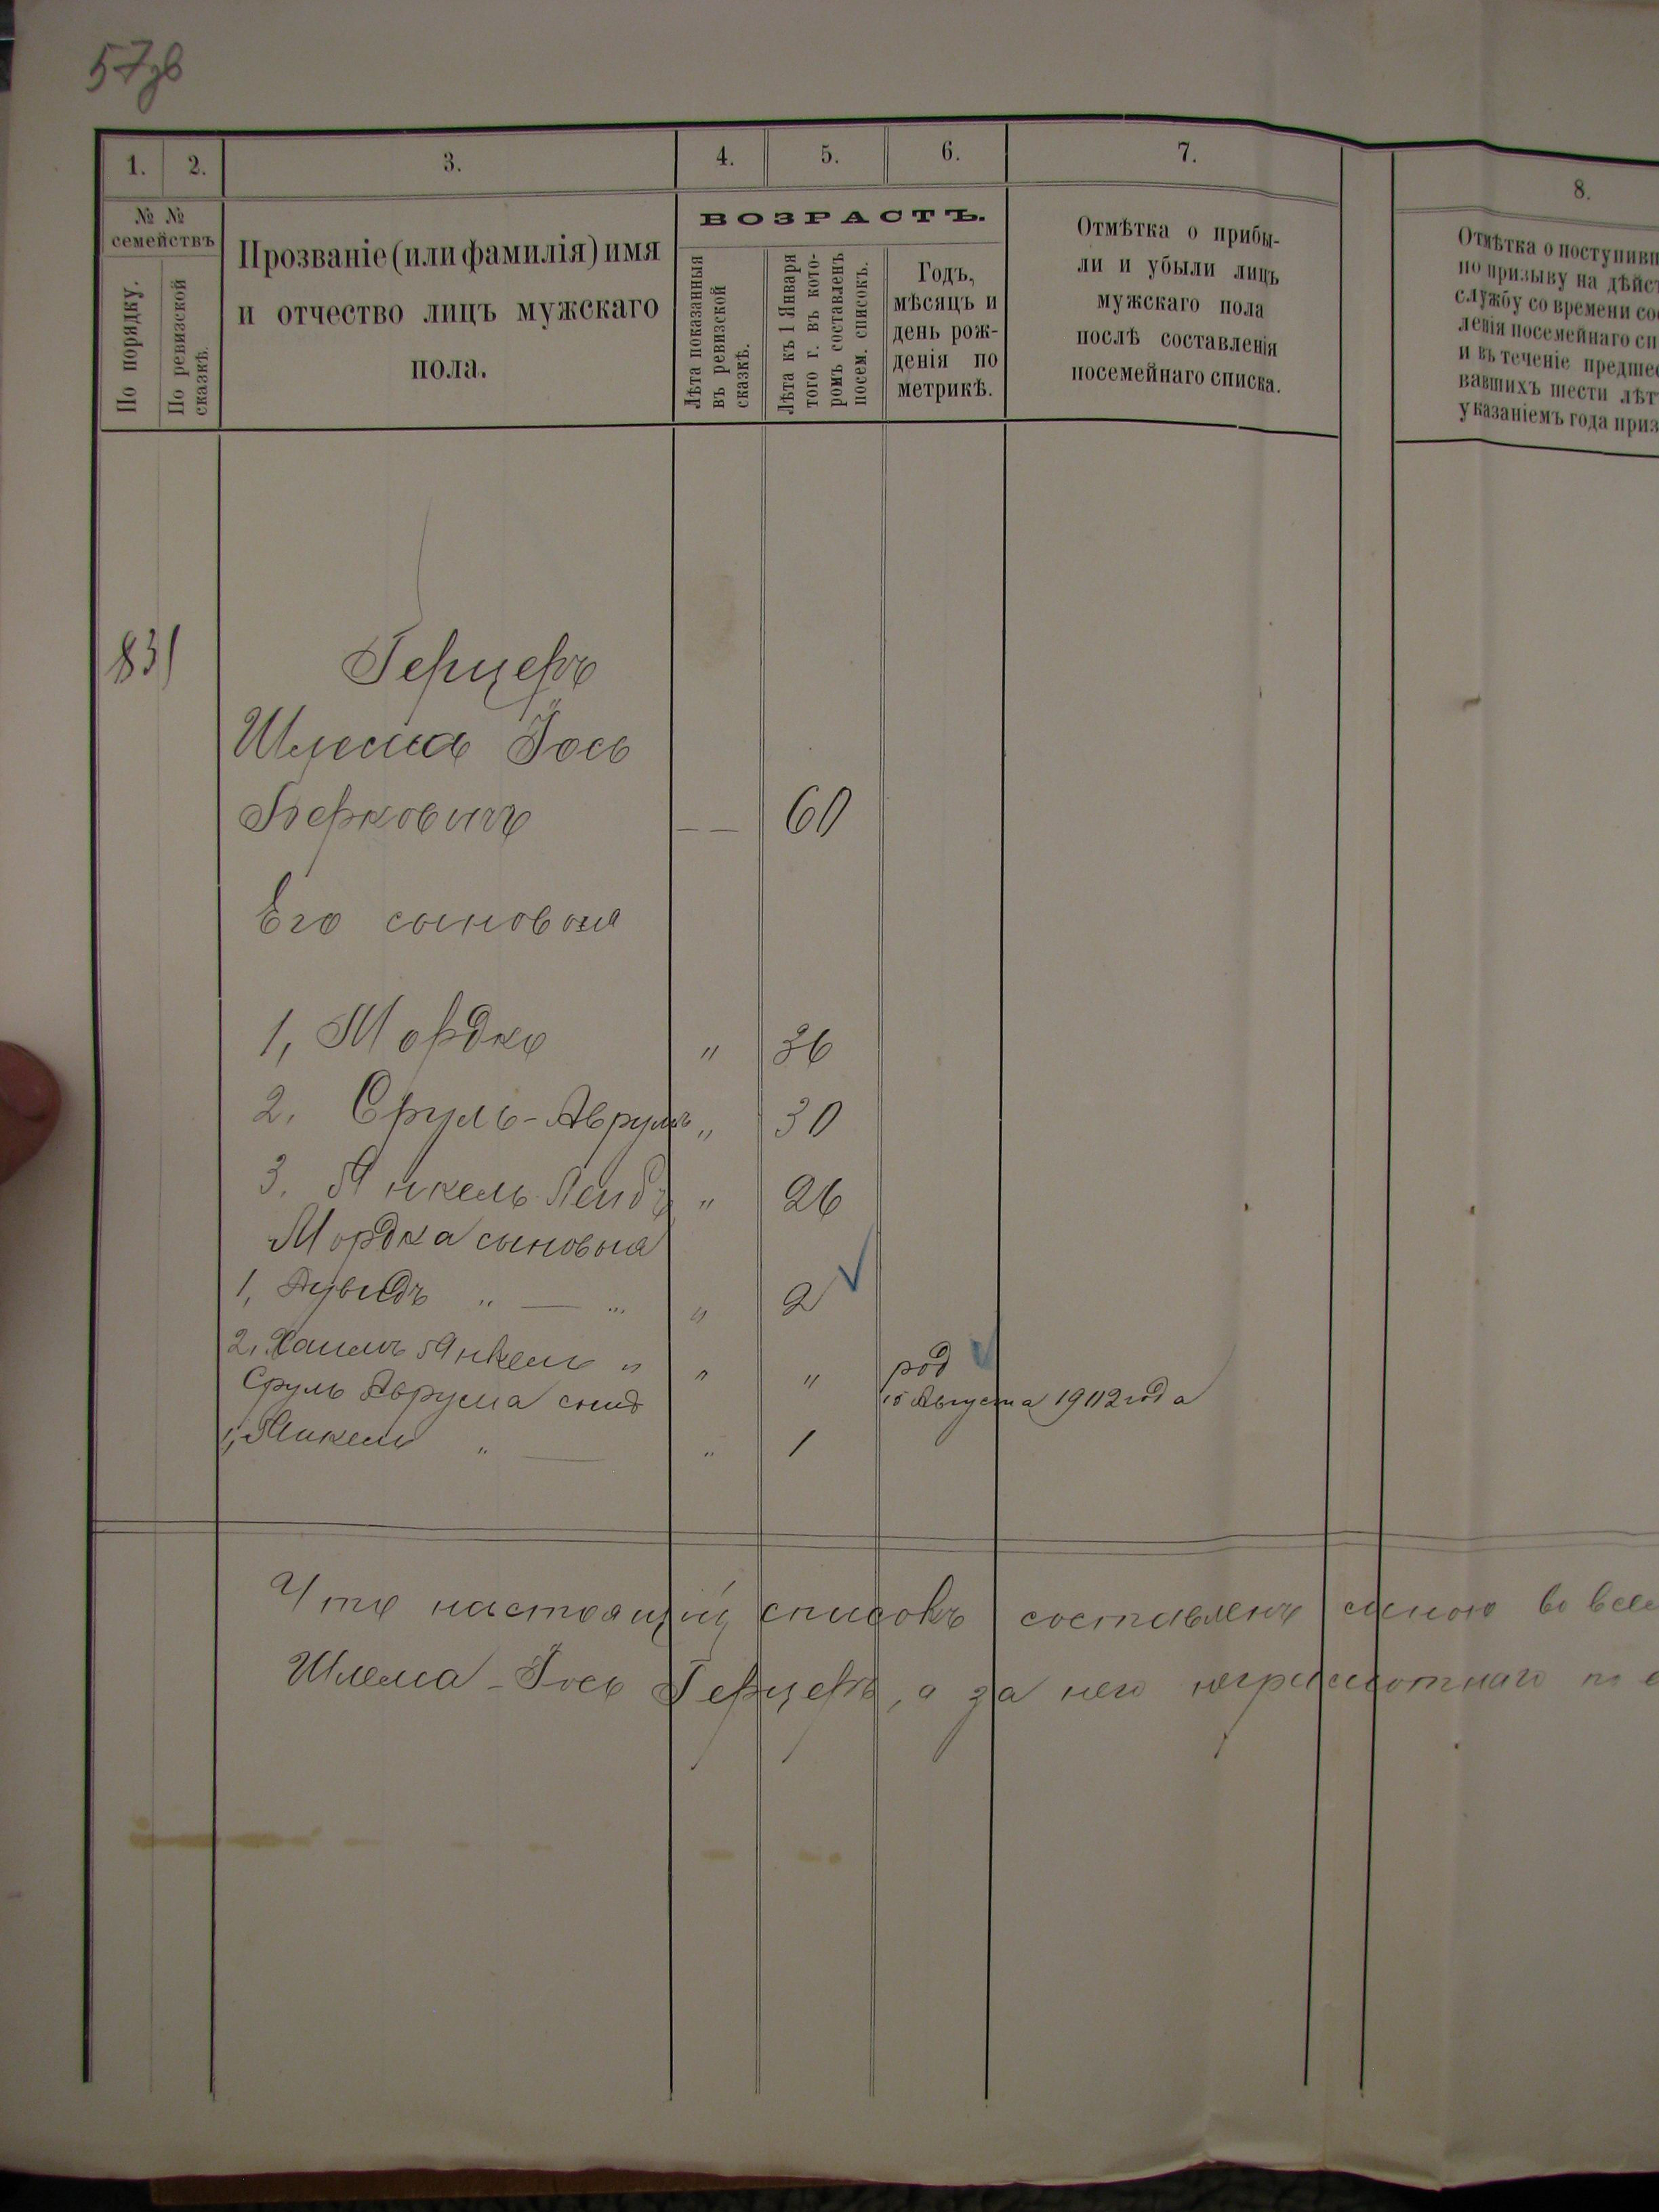 57зв
1.
2.
3.
4.
5.
6.
7.
8.
№ №
семействъ
По порядку.
По ревизской
сказкѣ.
Прозваніе (или фамилія) имя
и отчество лицъ мужскаго
пола.
ВОЗРАСТЪ.
Лѣта показанныя
въ ревизской
сказкѣ.
Лѣта къ 1 Января
того г. въ кото-
ромъ составленъ
посем. списокъ.
Годъ,
мѣсяцъ и
день рож-
денія по
метрикѣ.
Отмѣтка о прибы-
ли и убыли лицъ
мужскаго пола
послѣ составленія
посемейнаго списка.
Отмѣтка о поступивш
по призыву на дѣйст
службу со времени сос
ленія посемейнаго сп
и въ теченіе предшес
вавшихъ шести лѣт
указаніемъ года приз
831
Герцеръ
Шлема Іось
Берковичъ — — 60
Его сыновья
1, Мордко " 36
2. Сруль-Аврумъ " 30
3. Янкель Лейбъ " 26
Мордка сыновья
1, " — " " 2
2, Хаимъ Янкель " " " род
15 Августа 1902 года
Сруль Аврума сынъ
1, Янкель " — " 1
Что настоящій списокъ составленъ мною во все
Шлема-Іось Герцеръ, а за него неграмотнаго по